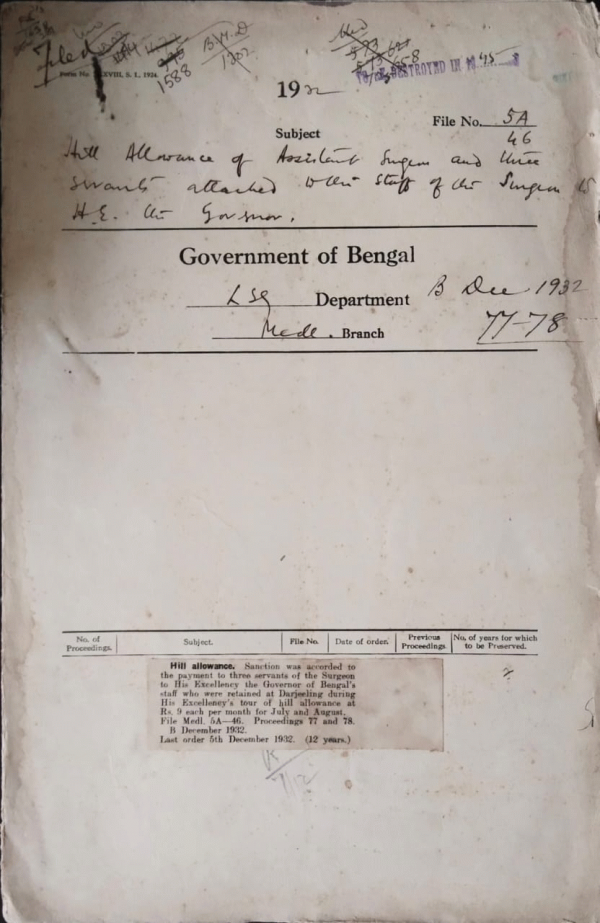 Filed
B.M.D
1202
1588
658
TO BE DESTROYED IN 1945
1932
File No. 5A
46
Subject
Hill Allowance of Assistant Surgeon and three
servants attached to the Staff of the Surgeon to
H.E. the Governor.
Government of Bengal
LSG Department B Dec 1932
Medl. Branch 77-78
No. of Proceedings. Subject. File No. Date of order. Previous Proceedings. No. of years for which to be Preserved.
Hill allowance. Sanction was accorded to
the payment to three servants of the Surgeon
to His Excellency the Governor of Bengal's
staff who were retained at Darjeeling during
His Excellency's tour of hill allowance at
Rs. 9 each per month for July and August.
File Medl. 5A—46. Proceedings 77 and 78.
B December 1932.
Last order 5th December 1932. (12 years.)
7/12